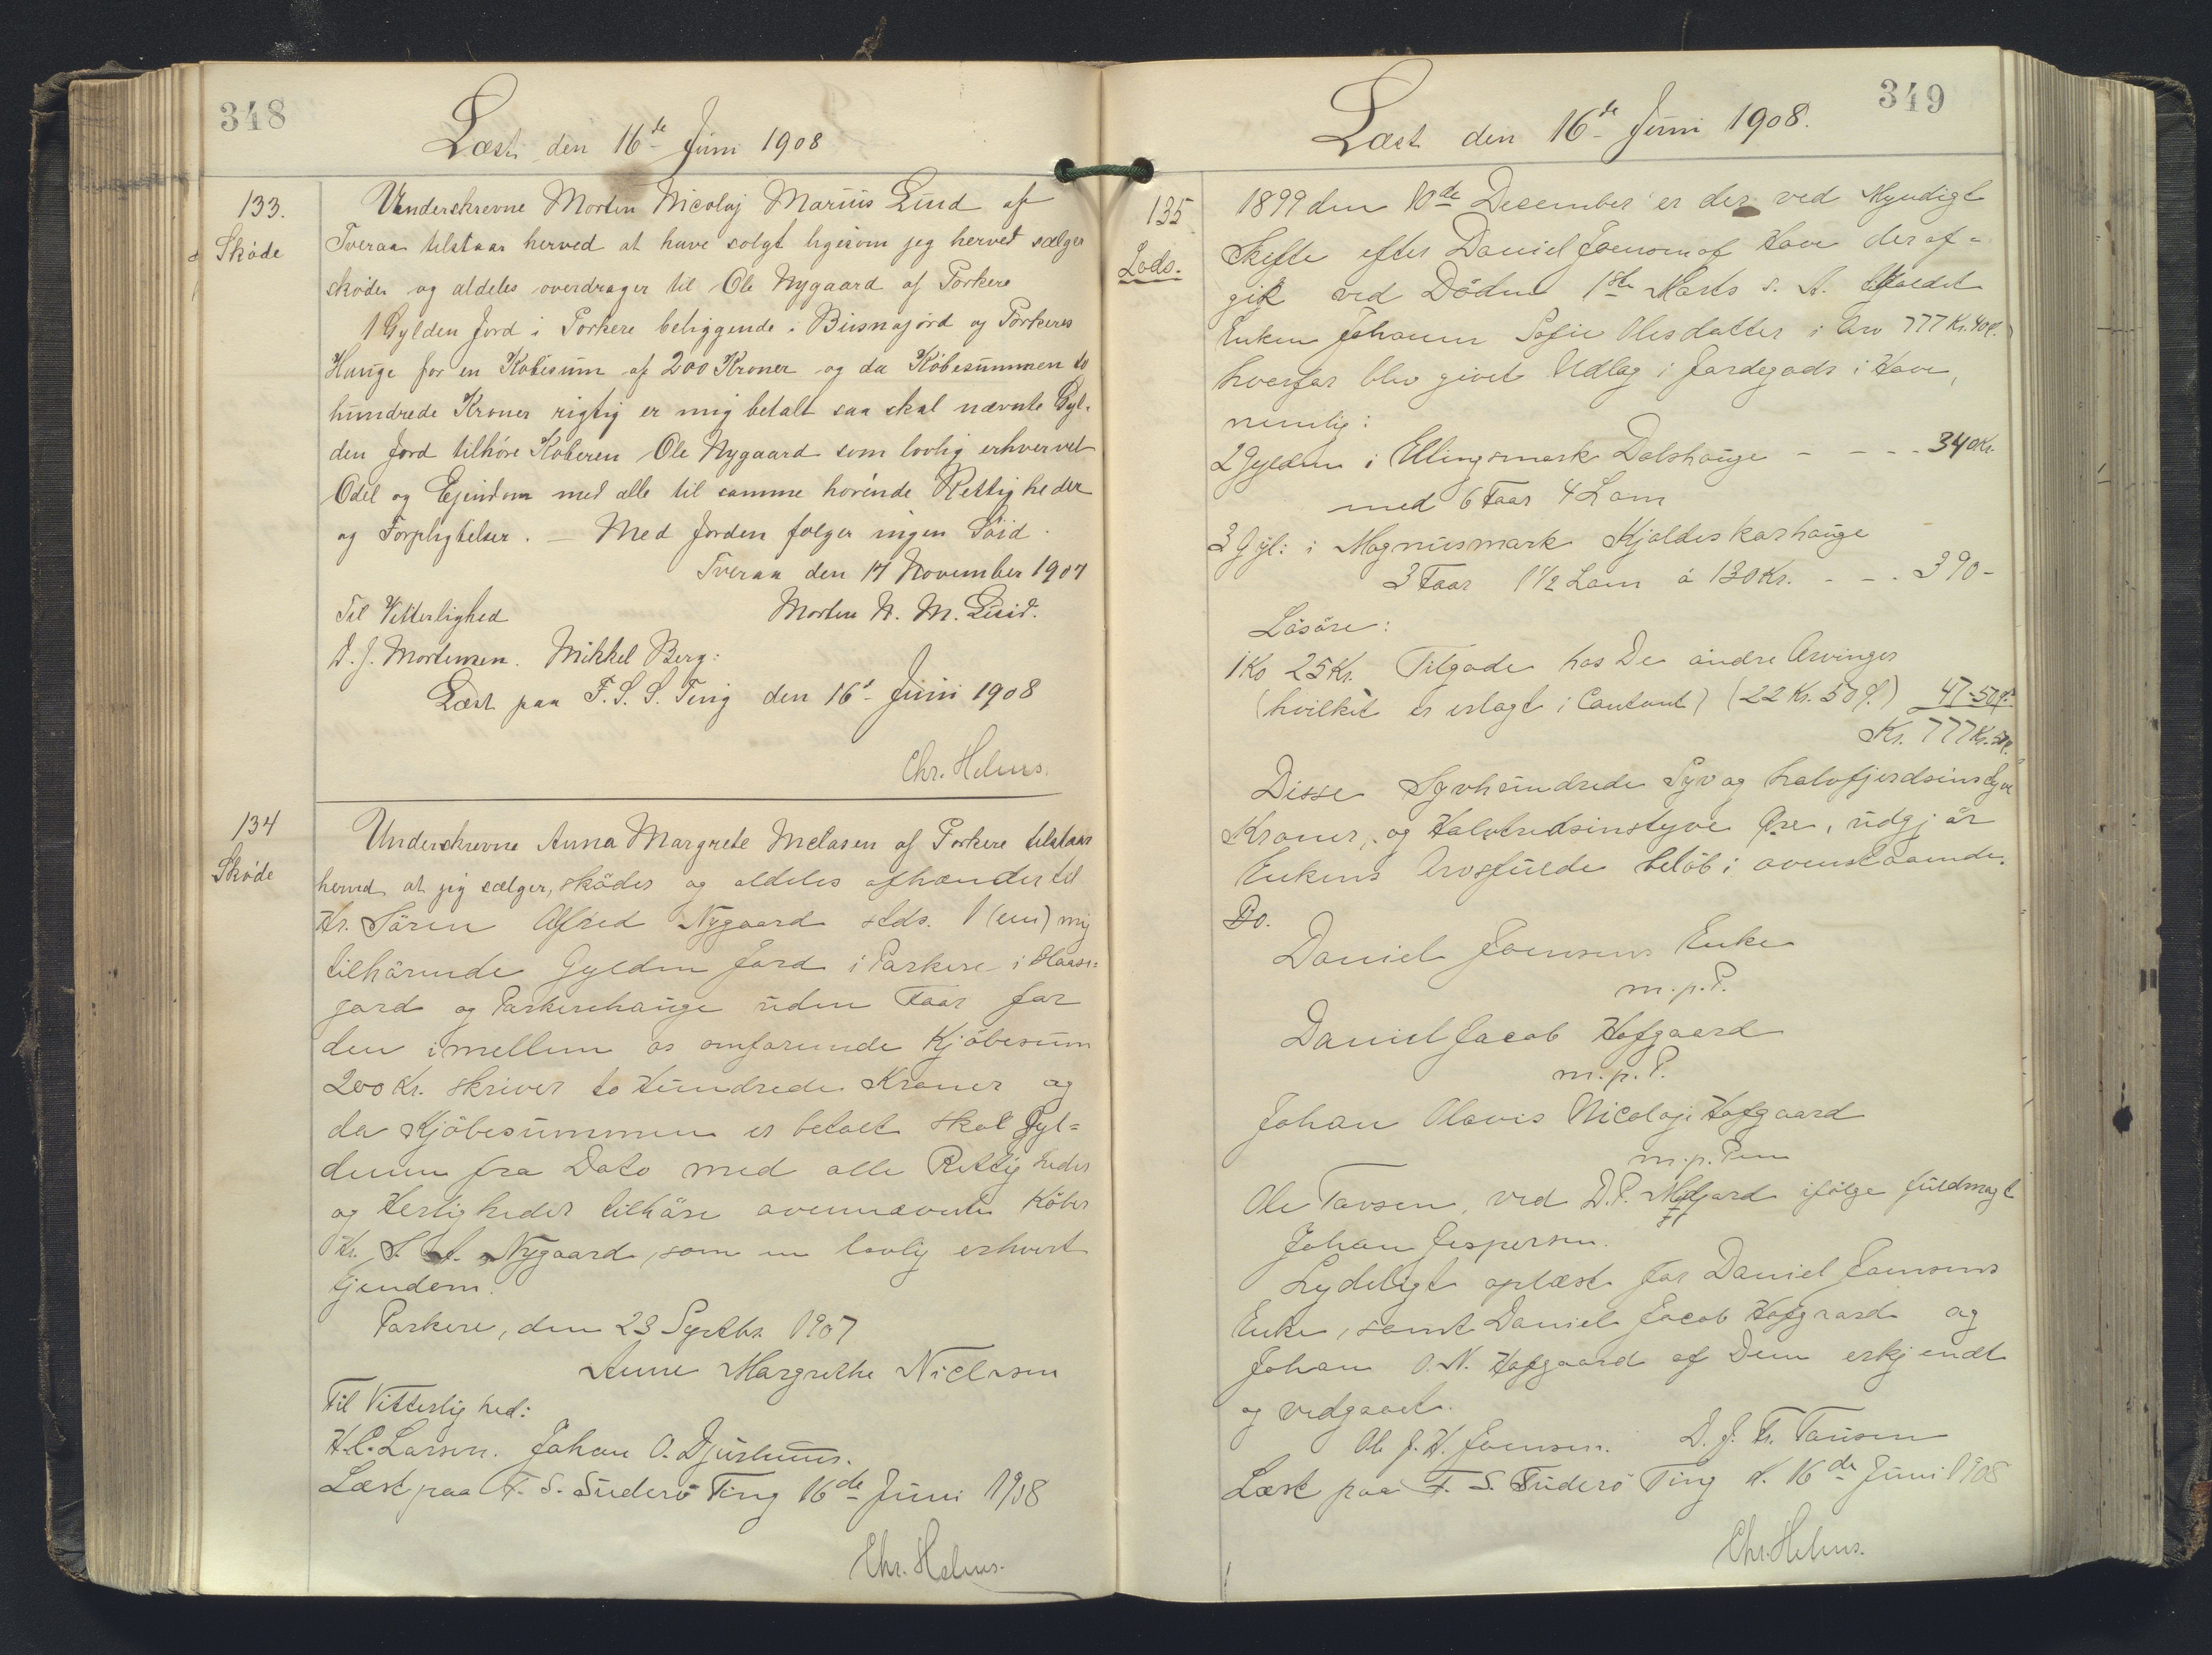 348
Læst den 16de Juni 1908
133.
Skøde
Underskrevne Morten Nicolaj Marius Lind af
Tveraa tilstaar herved at have solgt ligesom jeg herved sælger
skøder og aldeles overdrager til Ole Nygaard af Porkere
1 Gylden Jord i Porkere beliggende i og Porkeres
Hauge for en Købesum af 200 Kroner og da Købesummen to
hundrede Kroner rigtig er mig betalt saa skal nævnte Gyl-
den Jord tilhøre Køberen Ole Nygaard som lovlig erhvervet
Odel og Ejendom med alle til samme hørende Rettigheder
og Forpligtelser. – Med Jorden følger ingen Søid.
Tveraa den 17 November 1907
Til Vitterlighed
Morten N. M. Lind.
D. J. Mortensen. Mikkel Berg:
Læst paa F. S. S. Ting den 16d Juni 1908
Chr. Helms.
134
Skøde
Underskrevne Anna Margrete Niclasen af Porkere tilstaar
herved at jeg sælger, skøder og aldeles afhænder til
Hr. Sören Alfred Nygaard stds. 1 (een) mig
tilhörende Gylden Jord i Porkere i
gard og Porkerehauge uden Faar for
den imellem os omforenede Kjöbesum
200 Kr. skriver to Hundrede Kroner og
da Kjöbesummen er betalt skal Gyl=
denen fra Dato med alle Rettigheder
og Herligheder tilhöre ovennævnte Köber
Hr. S. A. Nygaard, som en lovlig erhvert
Ejendom.
Porkere, den 23 Septbr. 1907
Anne Margrethe Niclasen
Til Vitterlighed:
H.C. Larsen. Johan O. Djurhuus.
Læst paa F. S. Suderø Ting 16de Juni 1908
Chr. Helms.
349
Læst den 16de Juni 1908.
135
Lods.
1899 den 10de December er der ved Myndigt
Skifte efter Daniel Joensen af Hove der af=
gik ved Döden 1ste Marts s. A. tilfaldet
Enken Johanne Sofie Olesdatter i Arv 777 Kr. 40 Ø.
hvorfor blev givet Udlag i Jordegods i Hove,
nemlig:
2 Gylden i Ellingsmark Dalshauge - - - 340 Kr.
med 6 Faar 4 Lam
3 Gyl: i Magnusmark Kjoldeskarhauge
3 Faar 1 1/2 Lam á 130 Kr. - - - 390 -
Lösöre:
1 Ko 25 Kr. Tilgode hos De andre Arvinger
(hvilket er erlagt i Contant) (22 Kr. 50 Ø.) 47-50 Ø.
Kr. 777 Kr. 50 Ø.
Disse Syvhundrede Syv og halvfjerdsinstyve
Kroner, og Halvtredsinstyve Øre, udgjör
Enkens Arvsfulde belöb i ovenstaaende
Bo.
Daniel Joensens Enke
m. p. P.
Daniel Jacob Hofgaard
m. p. P.
Johan Olavis Nicolaji Hofgaard
m. p. Pen
Ole Tavsen, ved D. P. ifölge fuldmagt
Johan Jespersen.
Lydeligt oplæst for Daniel Joensens
Enke, samt Daniel Jacob Hofgaard og
Johan O. N. Hofgaard af Dem erkjendt
og vedgaaet.
Ole J. H. Joensen. D. J. Fr. Tausen
Læst paa F. S. Suderø Ting d. 16de Juni 1908
Chr. Helms.